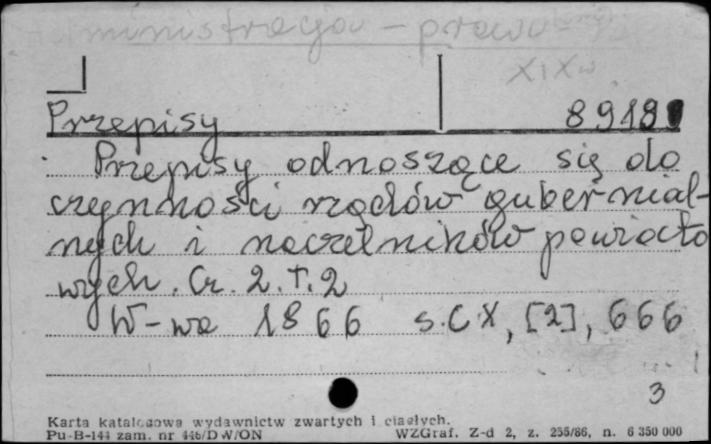 Administracja - prawo
XIX w
Przepisy 8918
Przepisy odnoszące się do
czynności rządów gubernial-
nych i naczelników powiato
wych. Cz. 2. T. 2
W-wa 1866 s. CX, [2], 666
3
Karta katalogowa wydawnictw zwartych i ciągłych.
Pu-B-144 zam. nr 446/D W/ON WZGraf. Z-d 2, z. 255/86, n. 6 350 000